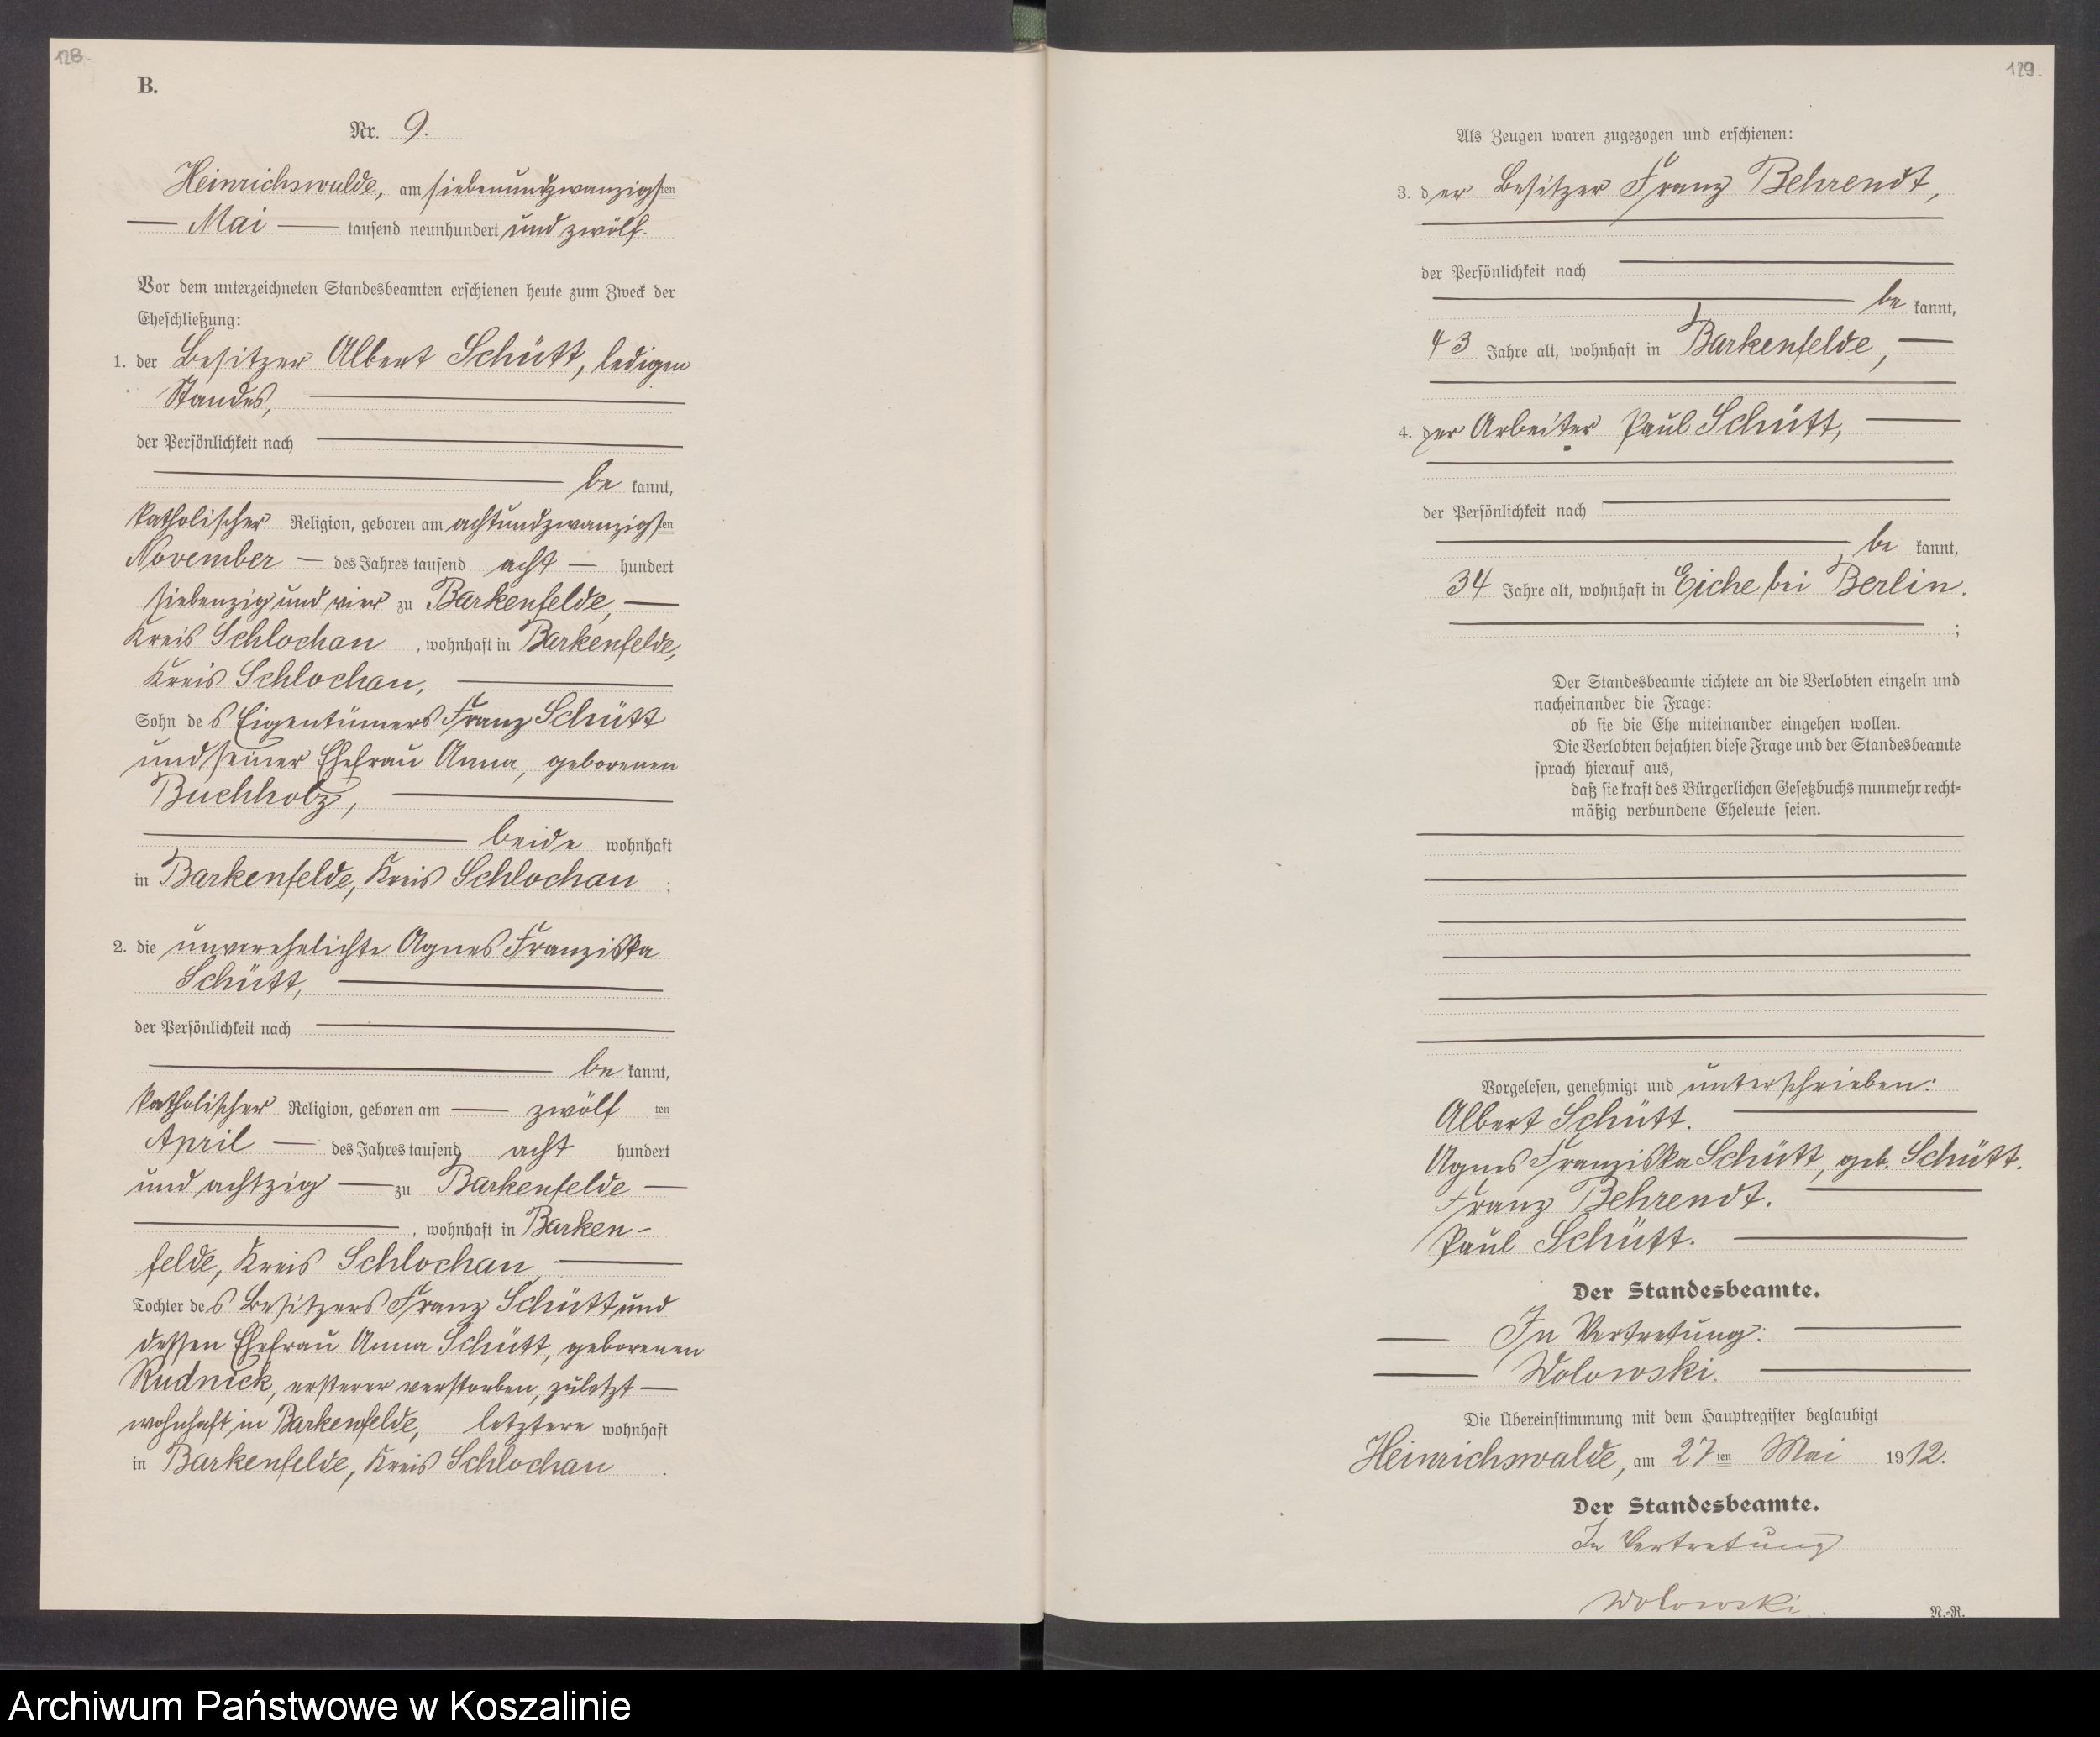 128.
B.
Nr. 9.
Heinrichswalde, am siebenundzwanzigsten
Mai tausend neunhundert und zwölf.
Vor dem unterzeichneten Standesbeamten erschienen heute zum Zweck der
Eheschließung:
1. der Besitzer Albert Schütt, ledigen
Standes,
der Persönlichkeit nach
be kannt,
katholischer Religion, geboren am achtundzwanzigsten
November des Jahres tausend acht hundert
siebenzig und vier zu Barkenfelde,
Kreis Schlochau, wohnhaft in Barkenfelde,
Kreis Schlochau,
Sohn des Eigentümers Franz Schütt
und seiner Ehefrau Anna, geborenen
Buchholz,
beide wohnhaft
in Barkenfelde, Kreis Schlochau;
2. die unverehelichte Agnes Franziska
Schütt,
der Persönlichkeit nach
be kannt,
katholischer Religion, geboren am zwölf ten
April des Jahres tausend acht hundert
und achtzig zu Barkenfelde
, wohnhaft in Barken-
felde, Kreis Schlochau,
Tochter des Besitzers Franz Schütt und
dessen Ehefrau Anna Schütt, geborenen
Rudnick, ersterer verstorben, zuletzt
wohnhaft in Barkenfelde, letztere wohnhaft
in Barkenfelde, Kreis Schlochau.
129.
Als Zeugen waren zugezogen und erschienen:
3. der Besitzer Franz Behrendt,
der Persönlichkeit nach
be kannt,
43 Jahre alt, wohnhaft in Barkenfelde,
4. der Arbeiter Paul Schütt,
der Persönlichkeit nach
be kannt,
34 Jahre alt, wohnhaft in Eiche bei Berlin.
;
Der Standesbeamte richtete an die Verlobten einzeln und
nacheinander die Frage:
ob sie die Ehe miteinander eingehen wollen.
Die Verlobten bejahten diese Frage und der Standesbeamte
sprach hierauf aus,
daß sie kraft des Bürgerlichen Gesetzbuchs nunmehr recht-
mäßig verbundene Eheleute seien.
Vorgelesen, genehmigt und unterschrieben:
Albert Schütt.
Agnes Franziska Schütt, geb. Schütt.
Franz Behrendt.
Paul Schütt.
Der Standesbeamte.
In Vertretung:
Wolowski.
Die Übereinstimmung mit dem Hauptregister beglaubigt
Heinrichswalde, am 27ten Mai 1912.
Der Standesbeamte.
In Vertretung
Wolowski.
N.-R.
Archiwum Państwowe w Koszalinie